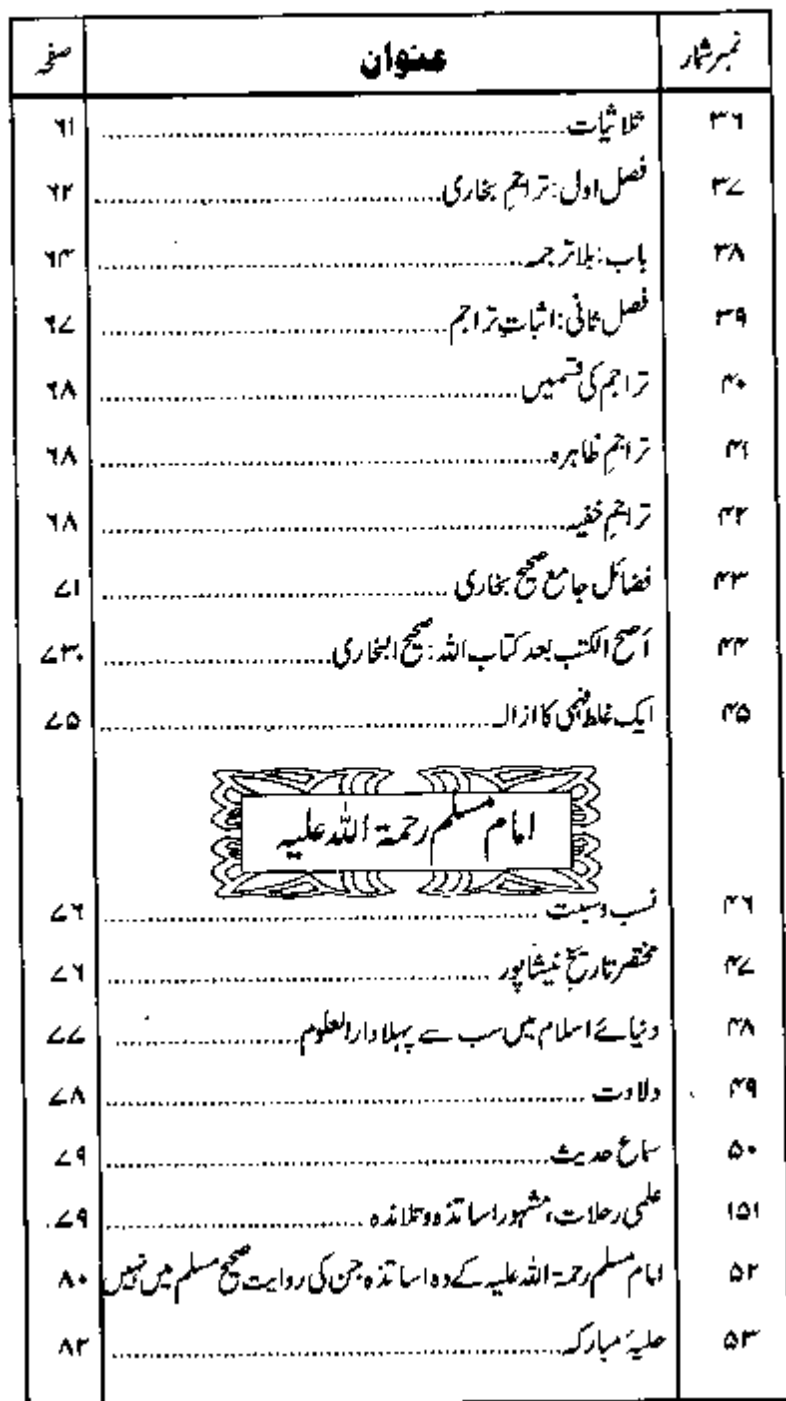 نمبر شمار عنوان صفحہ
۳۶ ثلاثیات ۶۱
۳۷ فصل اول: تراجمِ بخاری ۶۲
۳۸ باب: بلا ترجمہ ۶۴
۳۹ فصل ثانی: اثباتِ تراجم ۶۷
۴۰ تراجم کی قسمیں ۶۸
۴۱ تراجمِ ظاہرہ ۶۸
۴۲ تراجمِ خفیہ ۶۸
۴۳ فضائل جامع صحیح بخاری ۷۱
۴۴ أصح الکتب بعد کتاب اللہ: صحیح البخاری ۷۳
۴۵ ایک غلط فہمی کا ازالہ ۷۵
امام مسلم رحمۃ اللہ علیہ
۴۶ نسب ونسبت ۷۶
۴۷ مختصر تاریخِ نیشاپور ۷۶
۴۸ دنیائے اسلام میں سب سے پہلا دارالعلوم ۷۷
۴۹ ولادت ۷۸
۵۰ سماعِ حدیث ۷۹
۱۵۱ علمی رحلات، مشہور اساتذہ وتلامذہ ۷۹
۵۲ امام مسلم رحمۃ اللہ علیہ کے وہ اساتذہ جن کی روایت صحیح مسلم میں نہیں ۸۰
۵۳ حلیۂ مبارکہ ۸۲